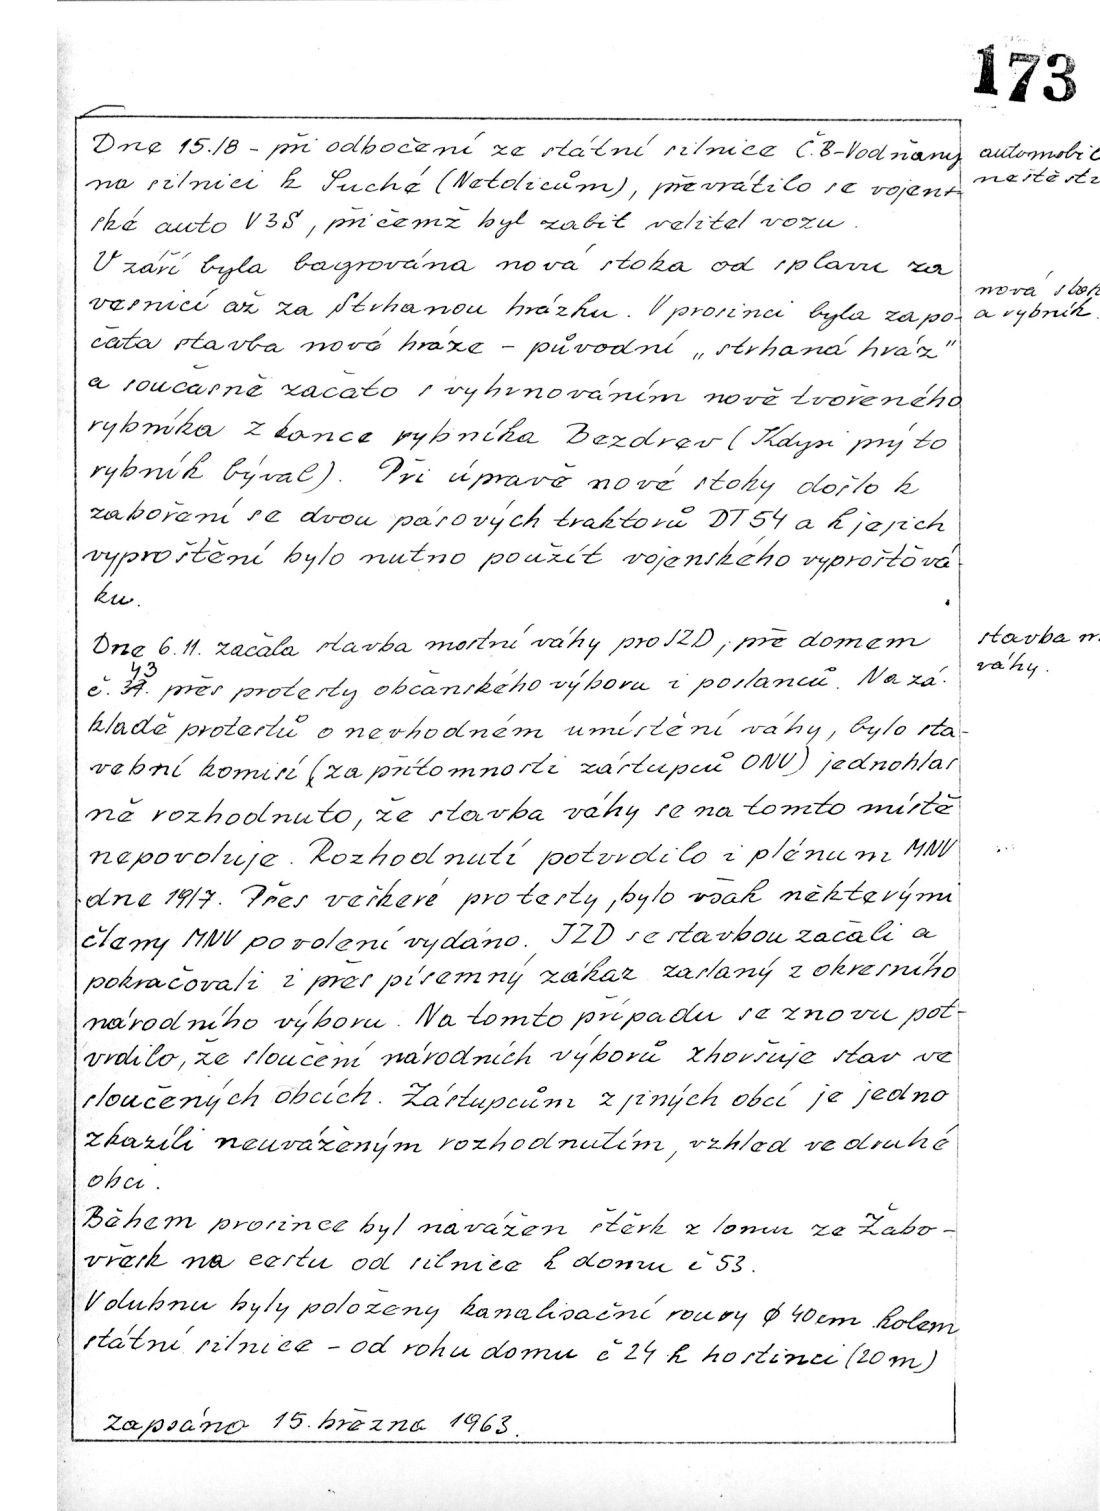 173
Dne 15./8 - při odbočení ze státní silnice Č.B-Vodňany
na silnici k Suché (Netolicům), převrátilo se vojen-
ské auto V3S, při čemž byl zabit velitel vozu.
automobil
neštěstí
V září byla bagrována nová stoka od splavu za
vesnicí až za Strhanou hrázku. V prosinci byla zapo-
čata stavba nové hráze - původní „strhaná hráz"
a současně začato s vyhrnováním nově tvořeného
rybníka z konce rybníka Bezdrev (Kdysi prý to
rybník býval). Při úpravě nové stoky došlo k
zaboření se dvou pásových traktorů DT 54 a k jejich
vyproštění bylo nutno použít vojenského vyprošťová-
ku.
nová stok
a rybník.
Dne 6.11. začala stavba mostní váhy pro JZD, pře domem
č. 43. přes protesty občanského výboru i poslanců. Na zá-
kladě protestů o nevhodném umístění váhy, bylo sta-
vební komisí (za přítomnosti zástupců ONV) jednohlas
ně rozhodnuto, že stavba váhy se na tomto místě
nepovoluje. Rozhodnutí potvrdilo i plénum MNV
dne 19/7. Přes veškeré protesty, bylo však některými
členy MNV povolení vydáno. JZD se stavbou začali a
pokračovali i přes písemný zákaz zaslaný z okresního
národního výboru. Na tomto případu se znovu pot-
vrdilo, že sloučení národních výborů zhoršuje stav ve
sloučených obcích. Zástupcům z jiných obcí je jedno
zkazili neuváženým rozhodnutím, vzhled ve druhé
obci.
stavba m
váhy.
Během prosince byl navážen štěrk z lomu ze Žabo-
vřesk na cestu od silnice k domu č 53.
V dubnu byly položeny kanalisační roury ϕ 40cm kolem
státní silnice - od rohu domu č 24 k hostinci (20m)
zapsáno 15. března 1963.